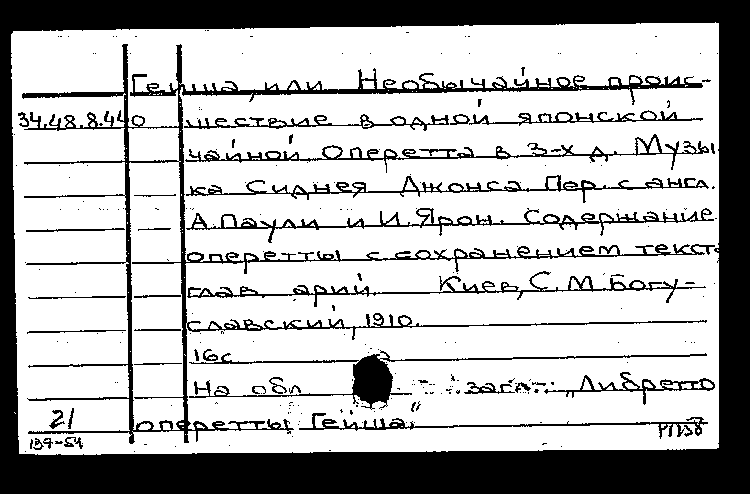 Гейша, или Необычайное проис-
34.48.8.440 шествие в одной японской
чайной Оперетта в 3-х д. Музы
ка Сиднея Джонса. Пер. с англ.
А. Паули и И. Ярон. Содержание
оперетты с сохранением текста
глав. арий. Киев, С. М. Богу-
славский, 1910.
16с
На обл загл.: „Либретто
21 оперетты Гейша"
139-54